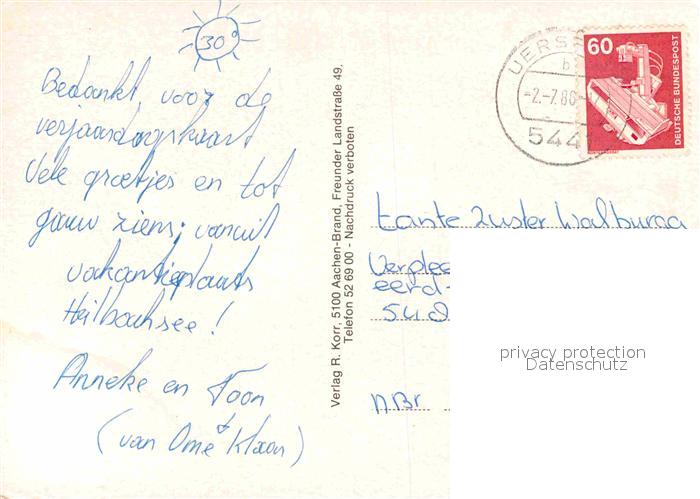 30°
Bedankt voor de
verjaardagskaart
Vele groetjes en tot
gauw ziens, vanuit
vakantieplaats
Heilbachsee!
Anneke en Toon
(van Ome Klaas)
Verlag R. Korr, 5100 Aachen-Brand, Freunder Landstraße 49,
Telefon 52 69 00 - Nachdruck verboten
UERS
b
-2.-7.80-
544
60
DEUTSCHE BUNDESPOST
tante Zuster Walburga
Verplee
eerd-
54
NBr
privacy protection
Datenschutz